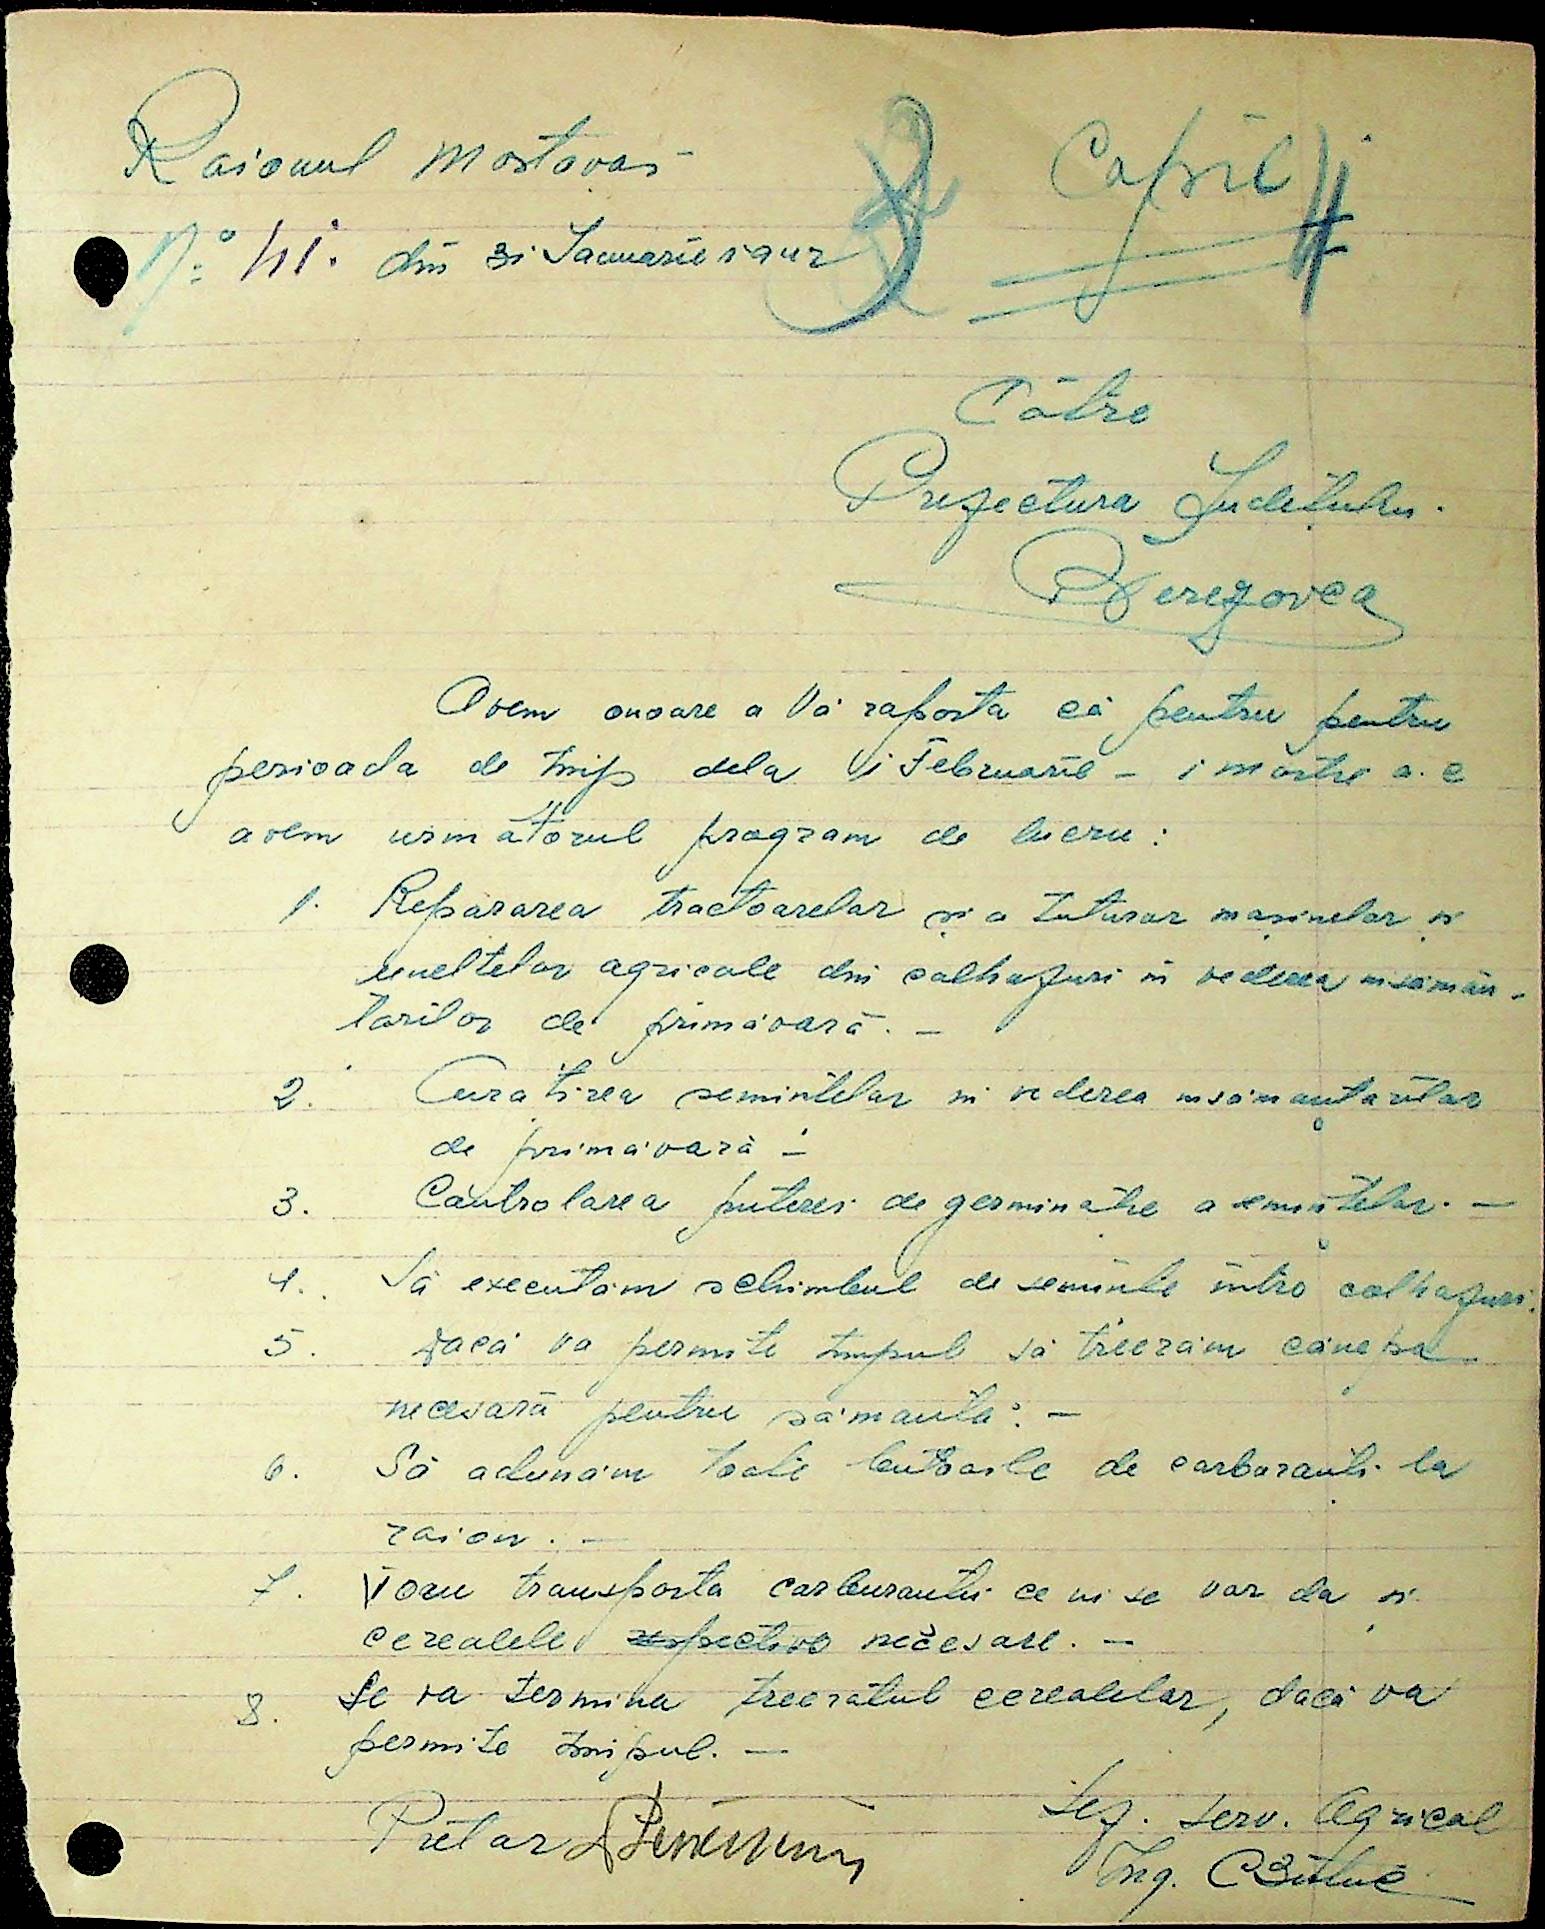 Raionul Mostovoi
Copii
No 41. din 31 Ianuarie 1942
Către
Prefectura Județului
Berezovca
Avem onoare a Vă raporta că pentru pentru
perioada de timp dela 1 Februarie – 1 Martie a. c
avem următorul program de lucru:
1. Repararea tractoarelor și a tuturor mașinelor și
uneltelor agricole din colhozuri în vederea însămân-
țarilor de primăvară. –
2. Curatirea semintelor in vederea insămanțarilor
de primăvară –
3. Controlarea puterei de germinatie a semințelor. –
4. Să executăm schimbul de seminte intre colhozuri.
5. Dacă va permite timpul să treerăm cânepa
necesară pentru sămanta. –
6. Să adunăm toate butoaele de carburanti la
raion. –
7. Vom transporta carburantii ce ni se vor da și
cerealele respective necesare. –
8. Se va termina treeratul cerealelor, dacă va
permite timpul. –
Pretor
Șef. serv. Agricol
Ing.